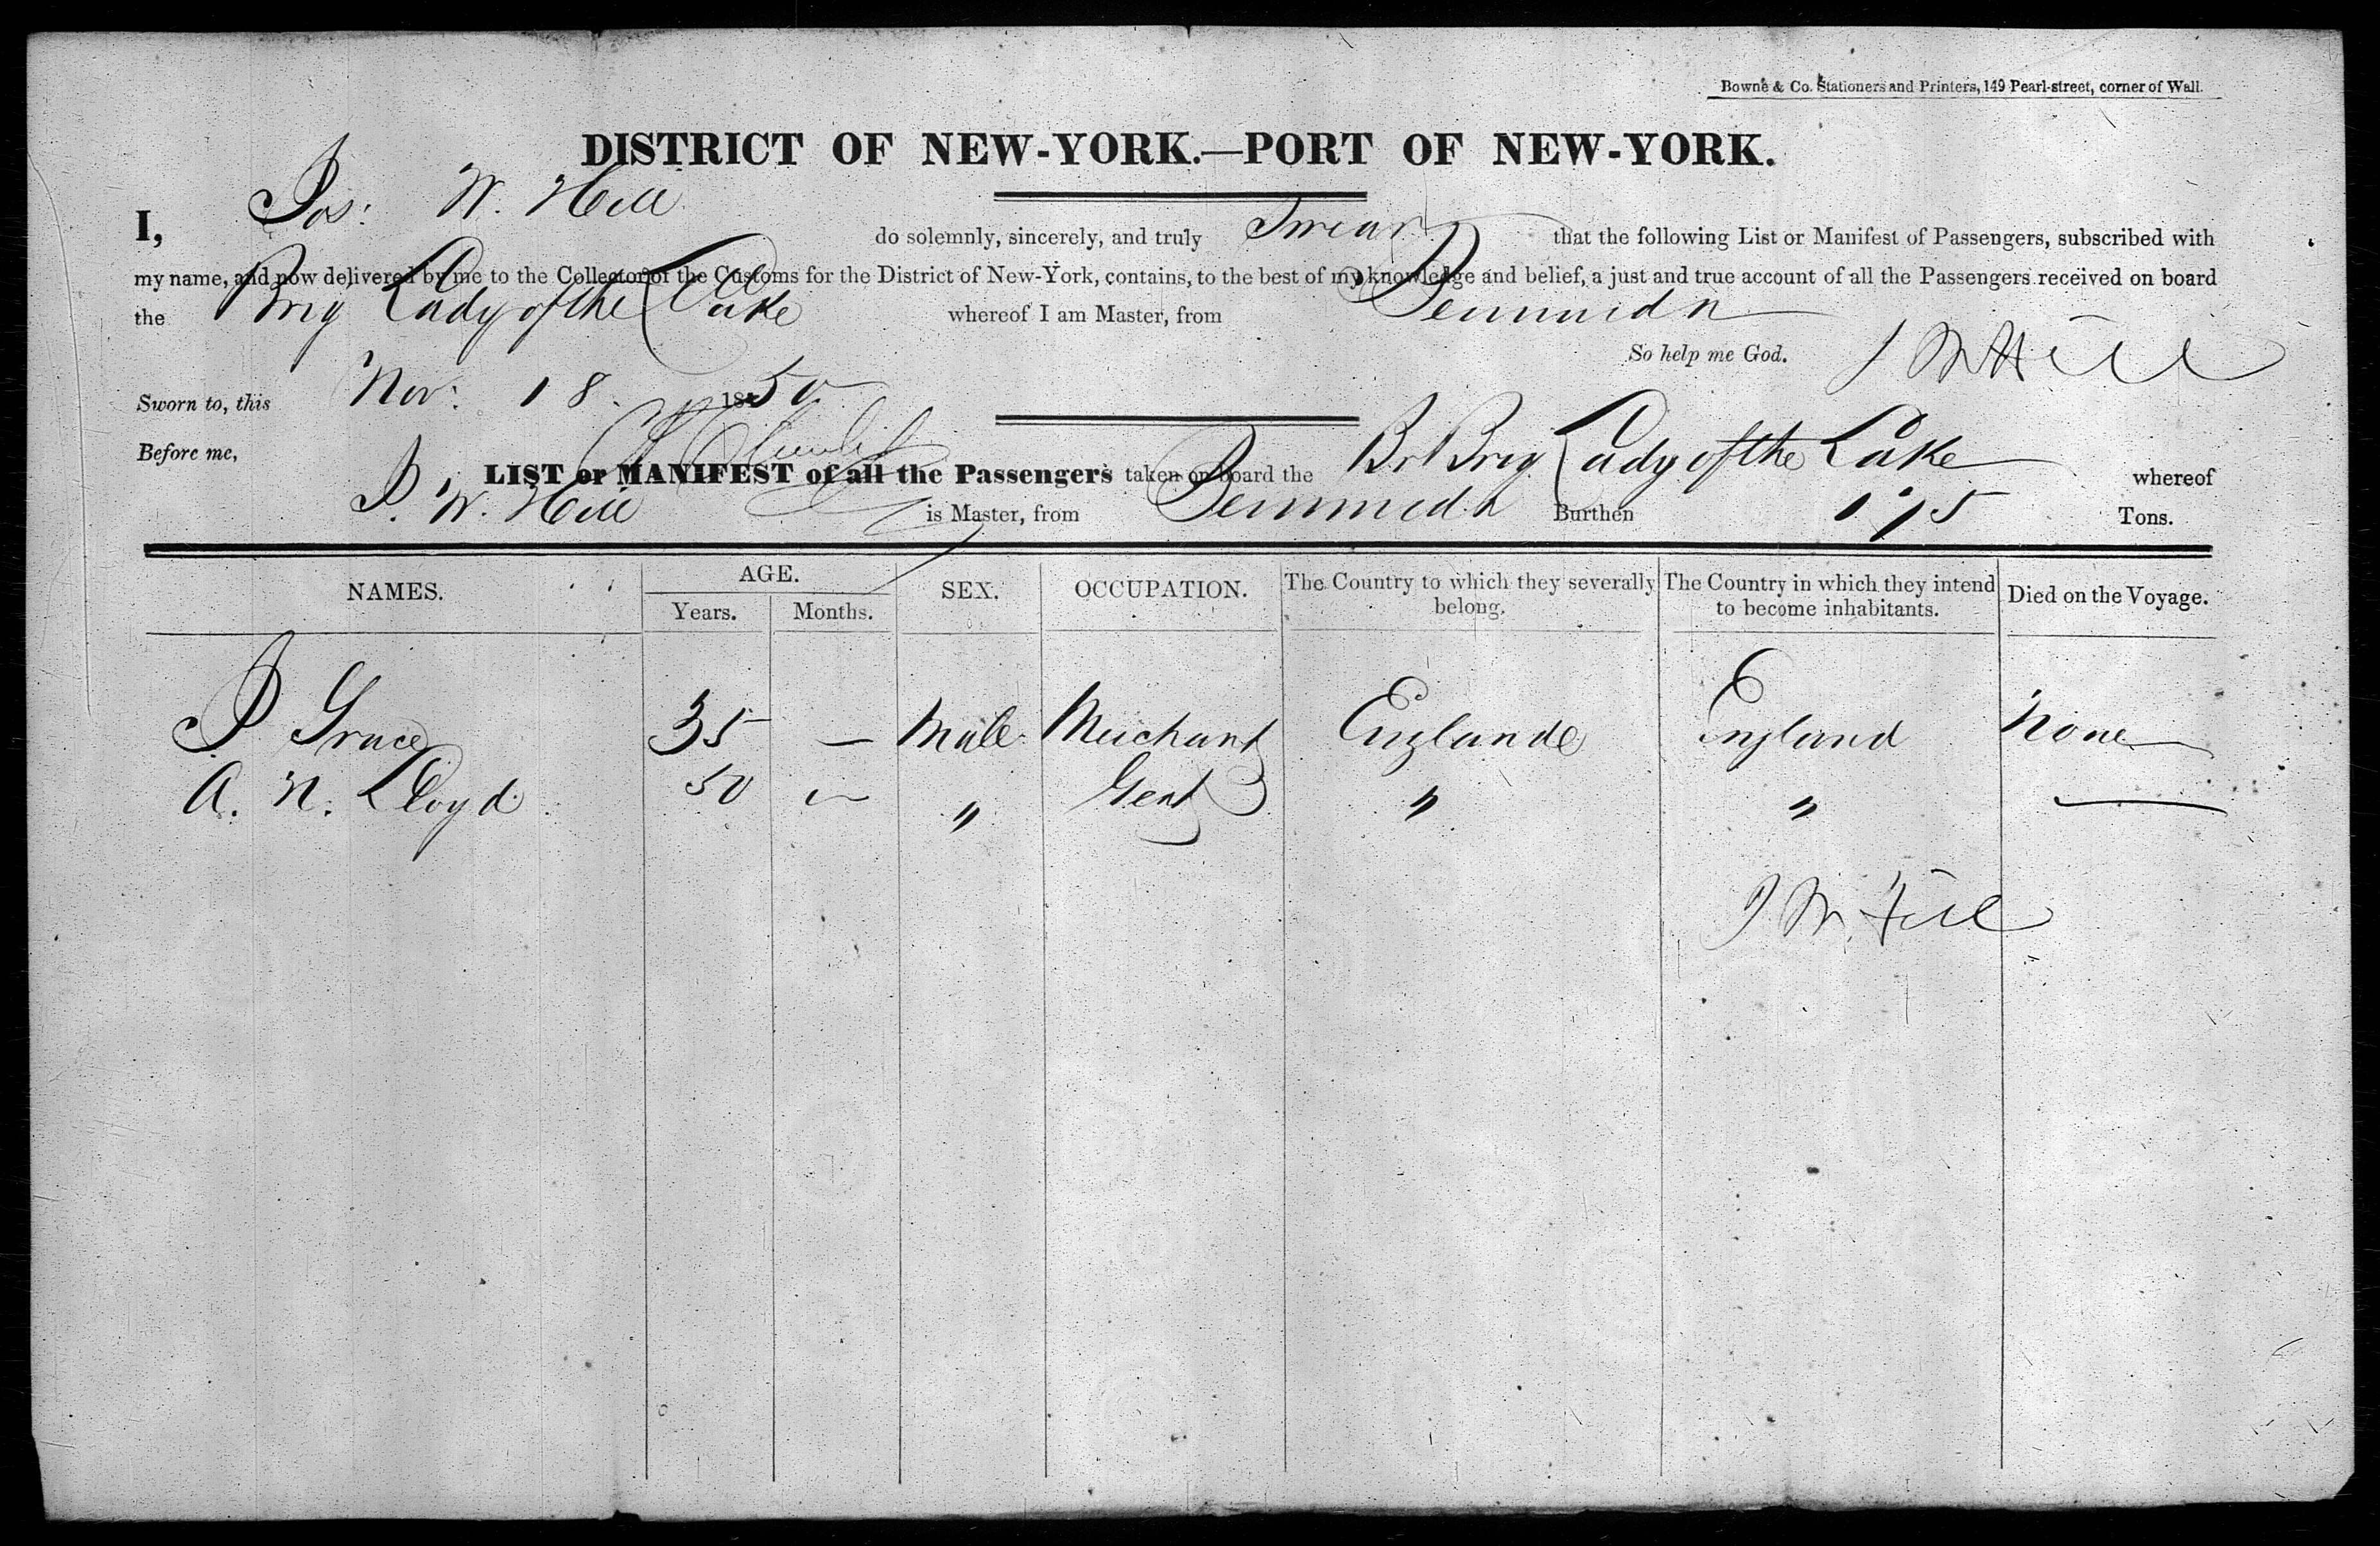 Bowne & Co. Stationers and Printers, 149 Pearl-street, corner of Wall.
DISTRICT OF NEW-YORK.—PORT OF NEW-YORK.
I, Jos: W. Hill do solemnly, sincerely, and truly Swear that the following List or Manifest of Passengers, subscribed with
my name, and now delivered by me to the Collector of the Customs for the District of New-York, contains, to the best of my knowledge and belief, a just and true account of all the Passengers received on board
the Brig Lady of the Lake whereof I am Master, from Bermuda
So help me God. J W Hill
Sworn to, this Nov: 18 1850
Before me,
LIST or MANIFEST of all the Passengers taken on board the Br Brig Lady of the Lake whereof
J. W. Hill is Master, from Bermuda Burthen 175 Tons.
NAMES. AGE. Years. Months. SEX. OCCUPATION. The Country to which they severally belong. The Country in which they intend to become inhabitants. Died on the Voyage.
J Grace 35 — Male Merchant England England None
A. N. Lloyd 50 — " Gent " " —
J W. Hill